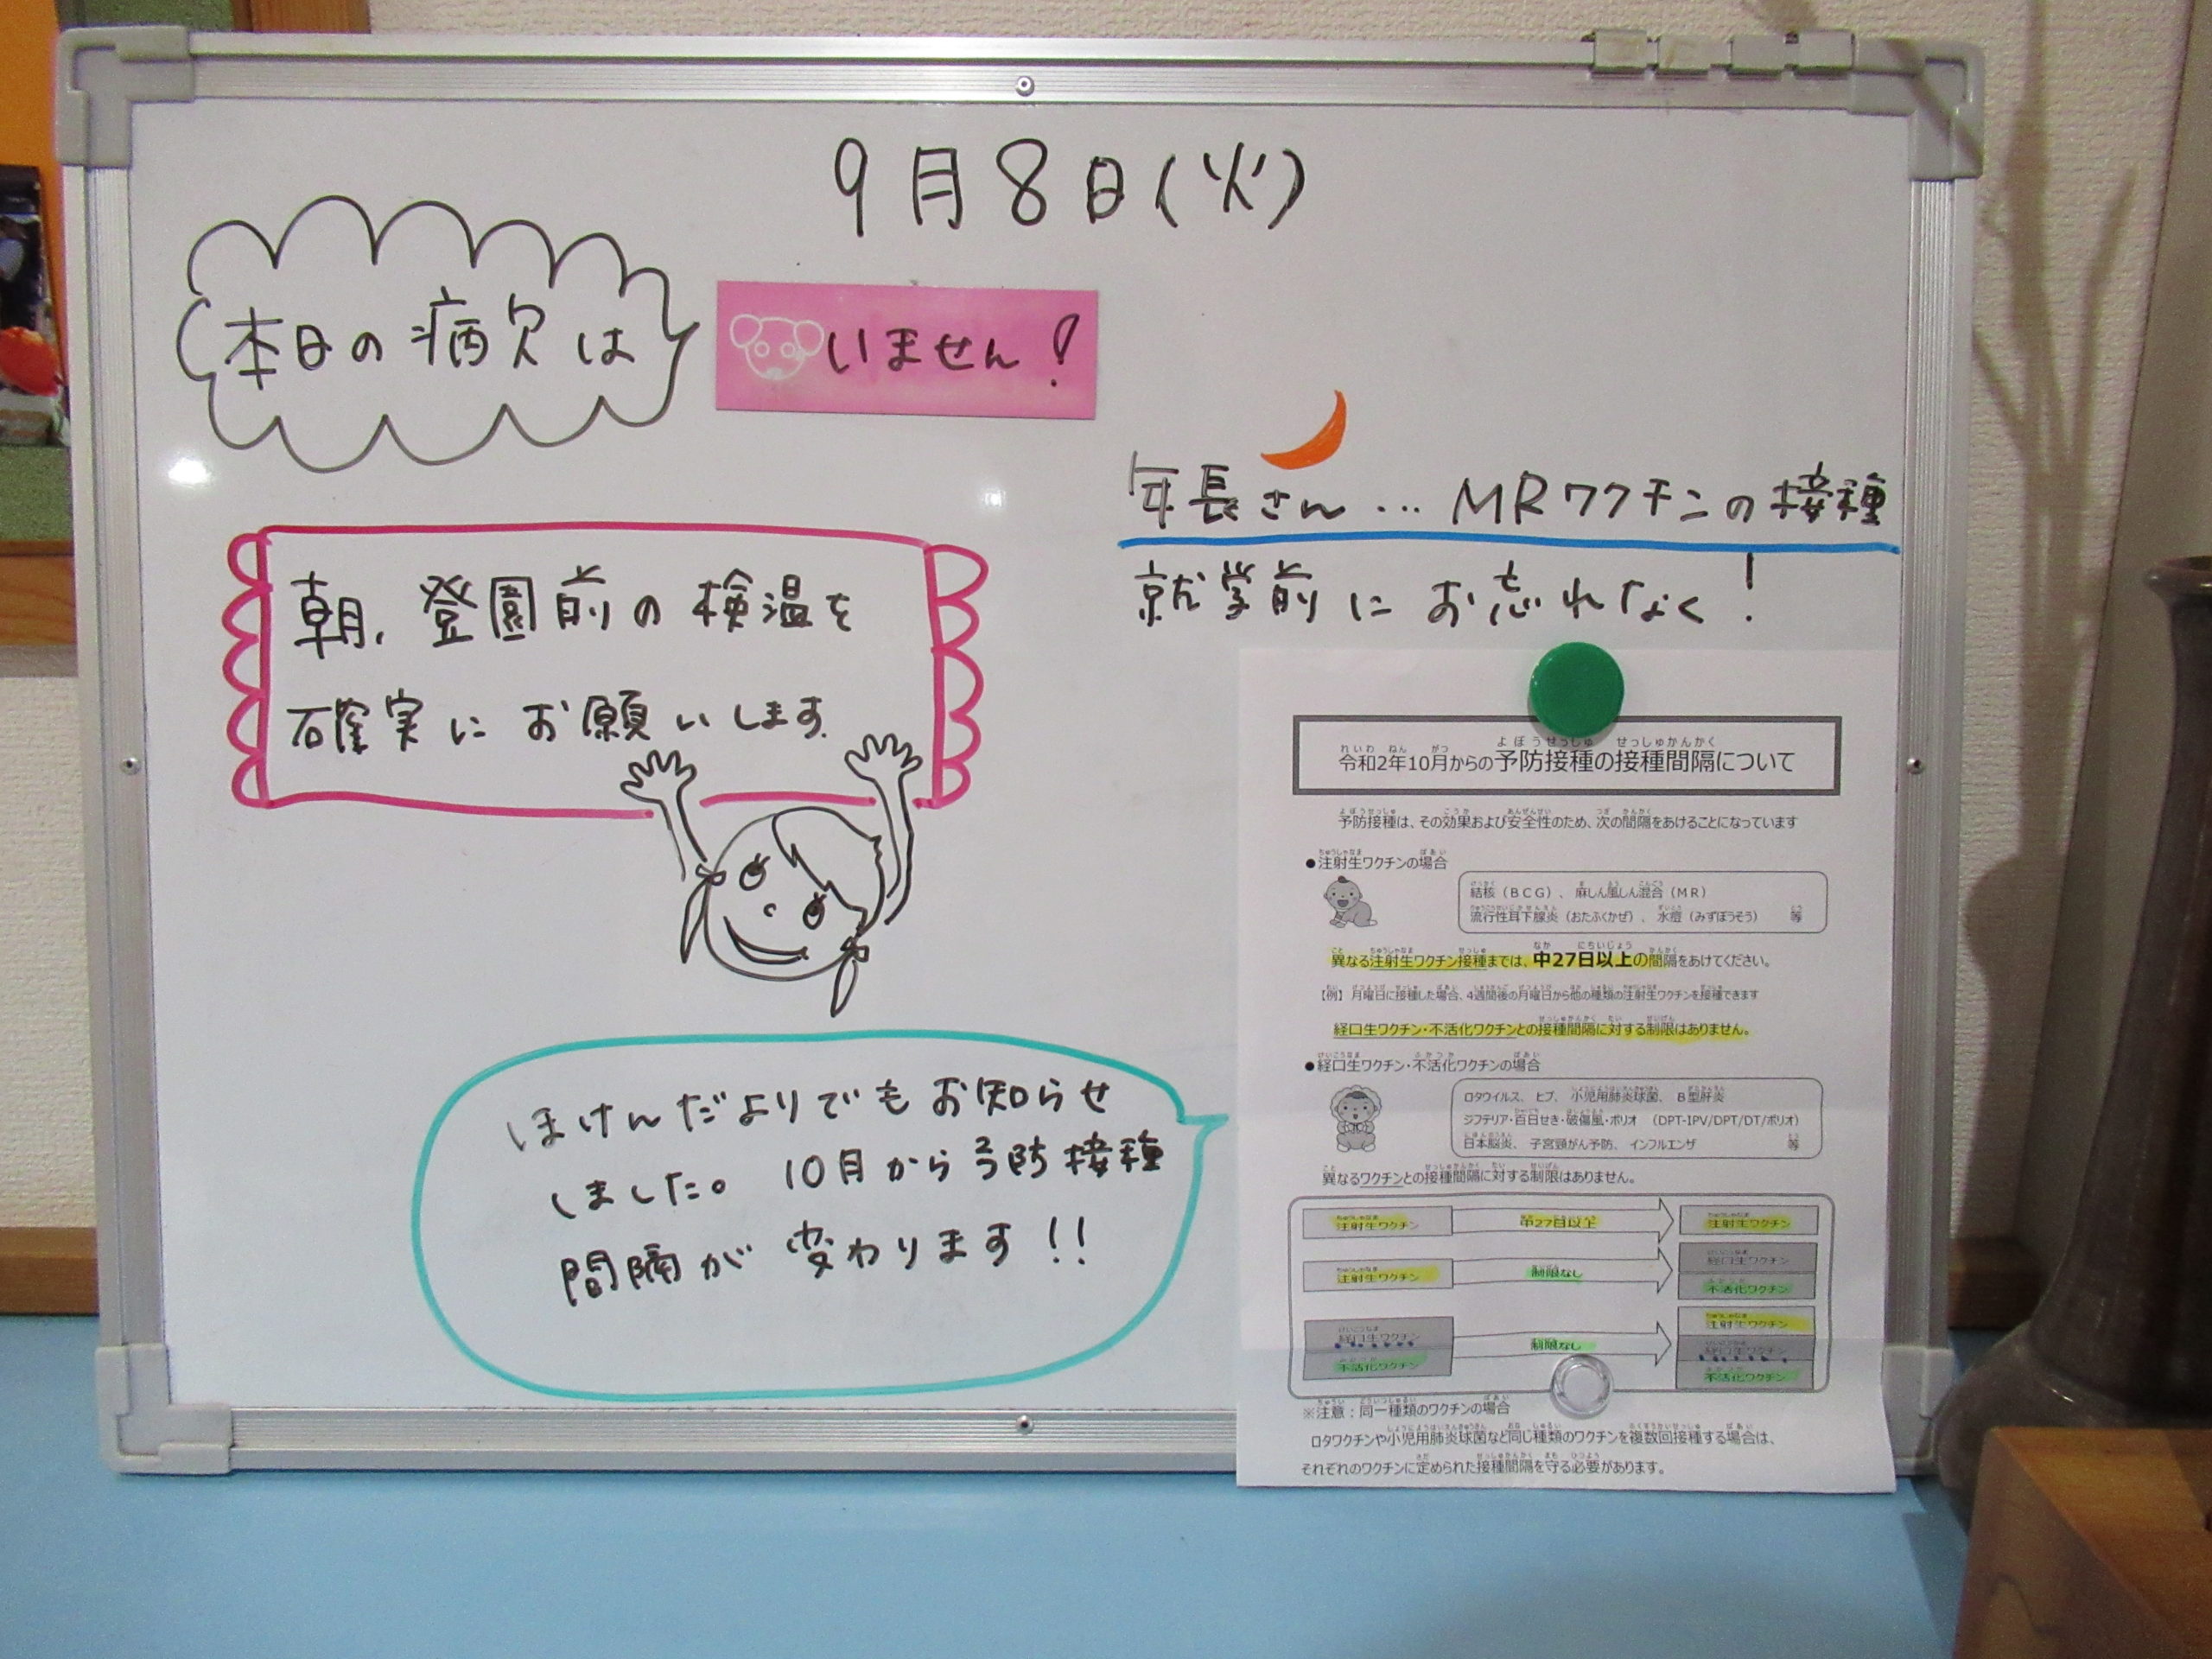 9月8日(火)
本日の病欠は
いません!
年長さん…MRワクチンの接種
就学前にお忘れなく!
朝、登園前の検温を
確実にお願いします.
ほけんだよりでもお知らせ
しました。10月から予防接種
間隔が変わります!!
令和2年10月からの予防接種の接種間隔について
予防接種は、その効果および安全性のため、次の間隔をあけることになっています
●注射生ワクチンの場合
結核(BCG)、麻しん風しん混合(MR)
流行性耳下腺炎(おたふくかぜ)、水痘(みずぼうそう) 等
異なる注射生ワクチン接種までは、中27日以上の間隔をあけてください。
【例】月曜日に接種した場合、4週間後の月曜日から他の種類の注射生ワクチンを接種できます
経口生ワクチン・不活化ワクチンとの接種間隔に対する制限はありません。
●経口生ワクチン・不活化ワクチンの場合
ロタウイルス、ヒブ、小児用肺炎球菌、B型肝炎
ジフテリア・百日せき・破傷風・ポリオ (DPT-IPV/DPT/DT/ポリオ)
日本脳炎、子宮頸がん予防、インフルエンザ 等
異なるワクチンとの接種間隔に対する制限はありません。
注射生ワクチン 中27日以上 注射生ワクチン
経口生ワクチン
注射生ワクチン 制限なし
不活化ワクチン
注射生ワクチン
経口生ワクチン 制限なし 経口生ワクチン
不活化ワクチン 不活化ワクチン
※注意:同一種類のワクチンの場合
ロタワクチンや小児用肺炎球菌など同じ種類のワクチンを複数回接種する場合は、
それぞれのワクチンに定められた接種間隔を守る必要があります。